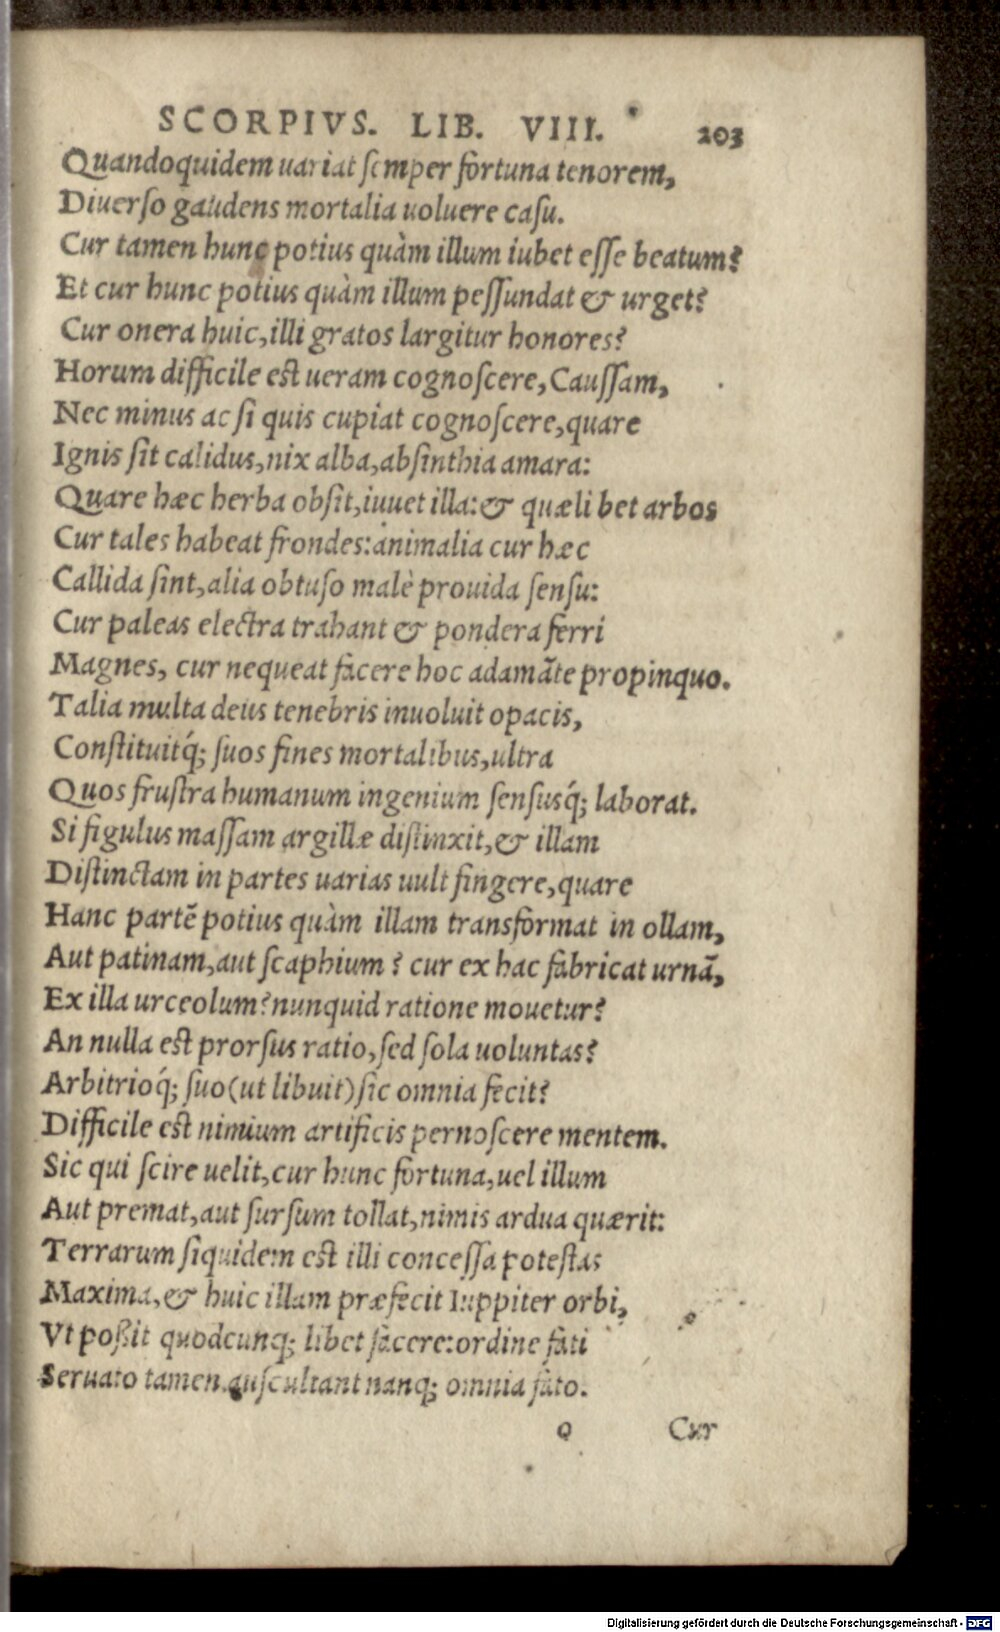 SCORPIVS. LIB. VIII. 203
Quandoquidem uariat semper fortuna tenorem,
Diuerso gaudens mortalia uoluere casu.
Cur tamen hunc potius quàm illum iubet esse beatum?
Et cur hunc potius quàm illum pessundat & urget?
Cur onera huic, illi gratos largitur honores?
Horum difficile est ueram cognoscere, Caussam,
Nec minus ac si quis cupiat cognoscere, quare
Ignis sit calidus, nix alba, absinthia amara:
Quare hæc herba obsit, iuuet illa: & quæli bet arbos
Cur tales habeat frondes: animalia cur hæc
Callida sint, alia obtuso malè prouida sensu:
Cur paleas electra trahant & pondera ferri
Magnes, cur nequeat facere hoc adamāte propinquo.
Talia multa deus tenebris inuoluit opacis,
Constituitq́; suos fines mortalibus, ultra
Quos frustra humanum ingenium sensusq́; laborat.
Si figulus massam argillæ distinxit, & illam
Distinctam in partes uarias uult fingere, quare
Hanc partē potius quàm illam transformat in ollam,
Aut patinam, aut scaphium? cur ex hac fabricat urnā,
Ex illa urceolum? nunquid ratione mouetur?
An nulla est prorsus ratio, sed sola uoluntas?
Arbitrioq́; suo (ut libuit) sic omnia fecit?
Difficile est nimium artificis pernoscere mentem.
Sic qui scire uelit, cur hunc fortuna, uel illum
Aut premat, aut sursum tollat, nimis ardua quærit:
Terrarum siquidem est illi concessa potestas
Maxima, & huic illam præfecit Iuppiter orbi,
Vt poßit quodcunq; libet facere: ordine fati
Seruato tamen. auscultant nanq; omnia fato.
o Cur
Digitalisierung gefördert durch die Deutsche Forschungsgemeinschaft - DFG